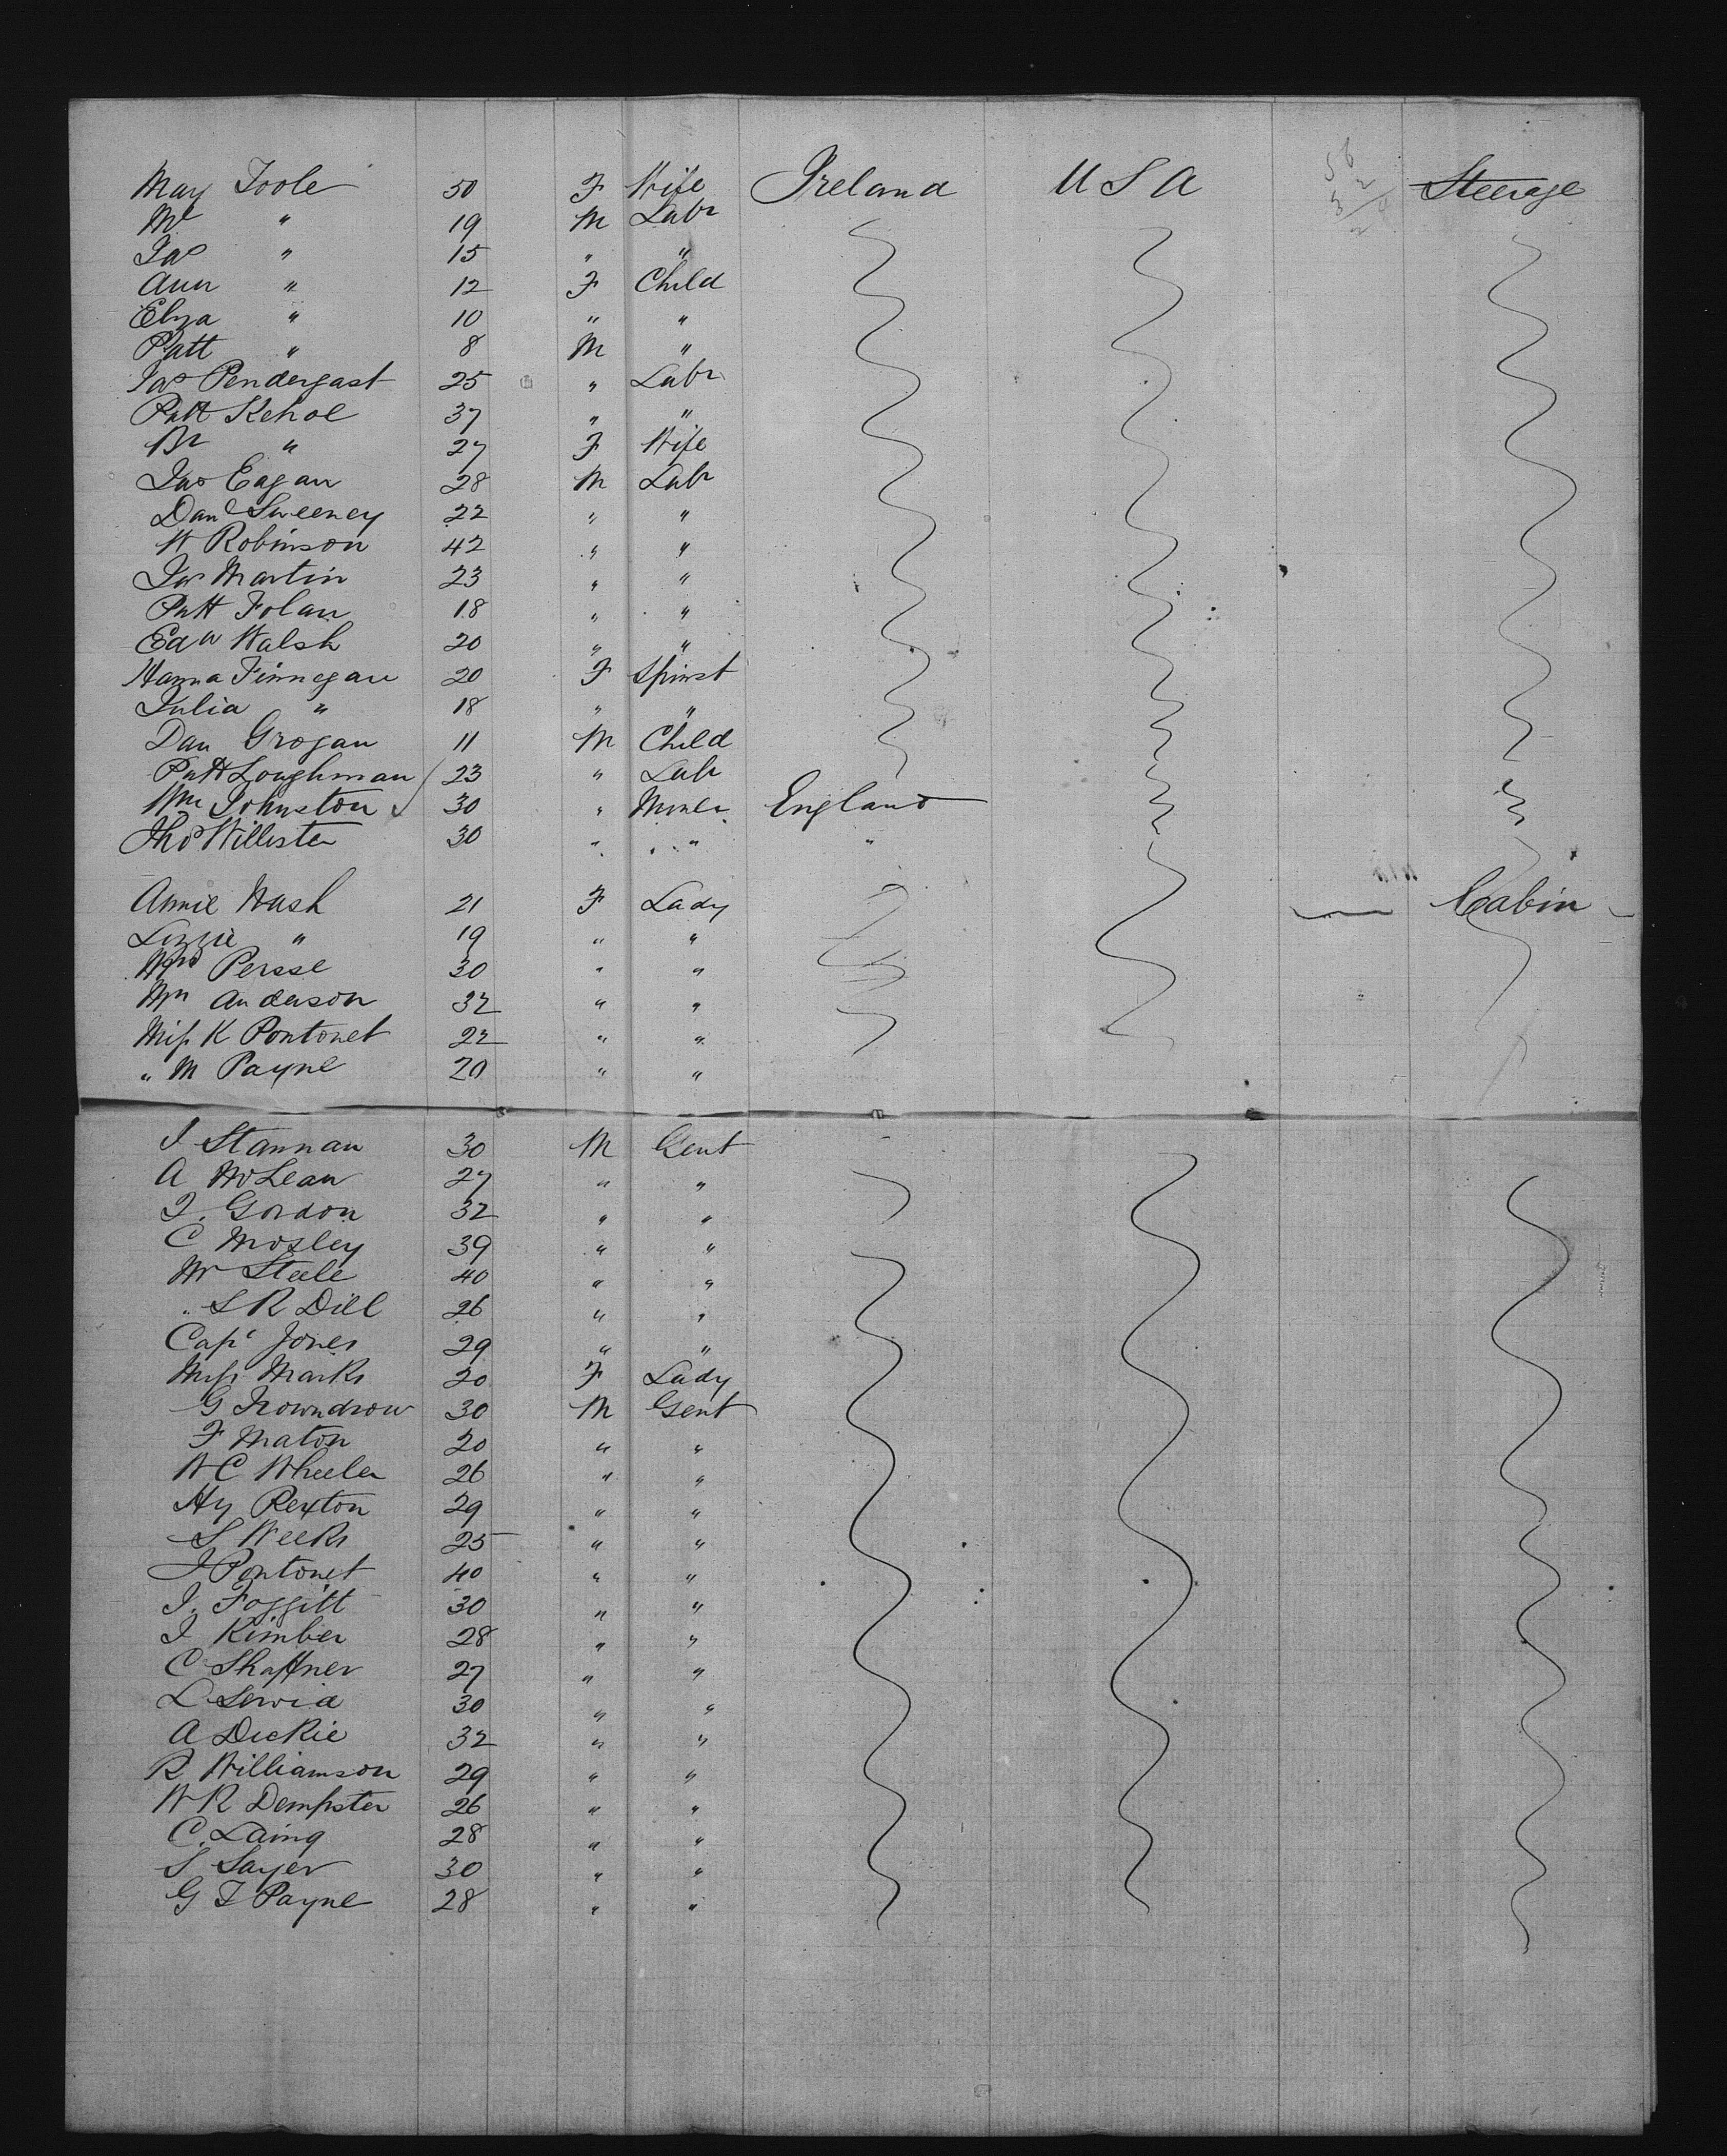 May Toole 50 F Wife Ireland U S A Steerage
Ml " 19 M Labr
Jas " 15 " "
Ann " 12 F Child
Eliza " 10 " "
Patt " 8 M "
Jas Pendergast 25 " Labr
Patt Kehoe 37 " "
" 27 F Wife
Jas Eagan 28 M Labr
Danl Sweeney 22 " "
W Robinson 42 " "
Jas Martin 23 " "
Patt Folan 18 " "
Edw Walsh 20 " "
Hanna Finnegan 20 F Spinst
Julia " 18 " "
Dan Grogan 11 M Child
Patt Loughman 23 " Labr
Wm Johnston 30 " Miner England
Thos Willister 30 " " "
Annie Nash 21 F Lady Cabin
Lizzie " 19 " "
Mrs Persse 30 " "
Mrs Anderson 32 " "
Miss K Pontonet 22 " "
" M Payne 20 " "
J Stannan 30 M Gent
A McLean 27 " "
J. Gordon 32 " "
C Mosley 39 " "
Mr Steele 40 " "
" S R Dill 26 " "
Capt Jones 29 " "
Miss Marks 20 F Lady
G 30 M Gent
F Maton 20 " "
W C Wheeler 26 " "
Hy Rexton 29 " "
S Weeks 25 " "
J Pontonet 40 " "
J. Foggitt 30 " "
J Kimber 28 " "
C Shaffner 27 " "
L 30 " "
A Dickie 32 " "
R Williamson 29 " "
W R Dempster 26 " "
C. Laing 28 " "
S Sayer 30 " "
G F Payne 28 " "